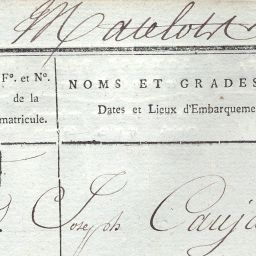 Matelots
F°. et N°.
de la
matricule.
NOMS ET GRADES
Dates et Lieux d'Embarqueme
Joseph